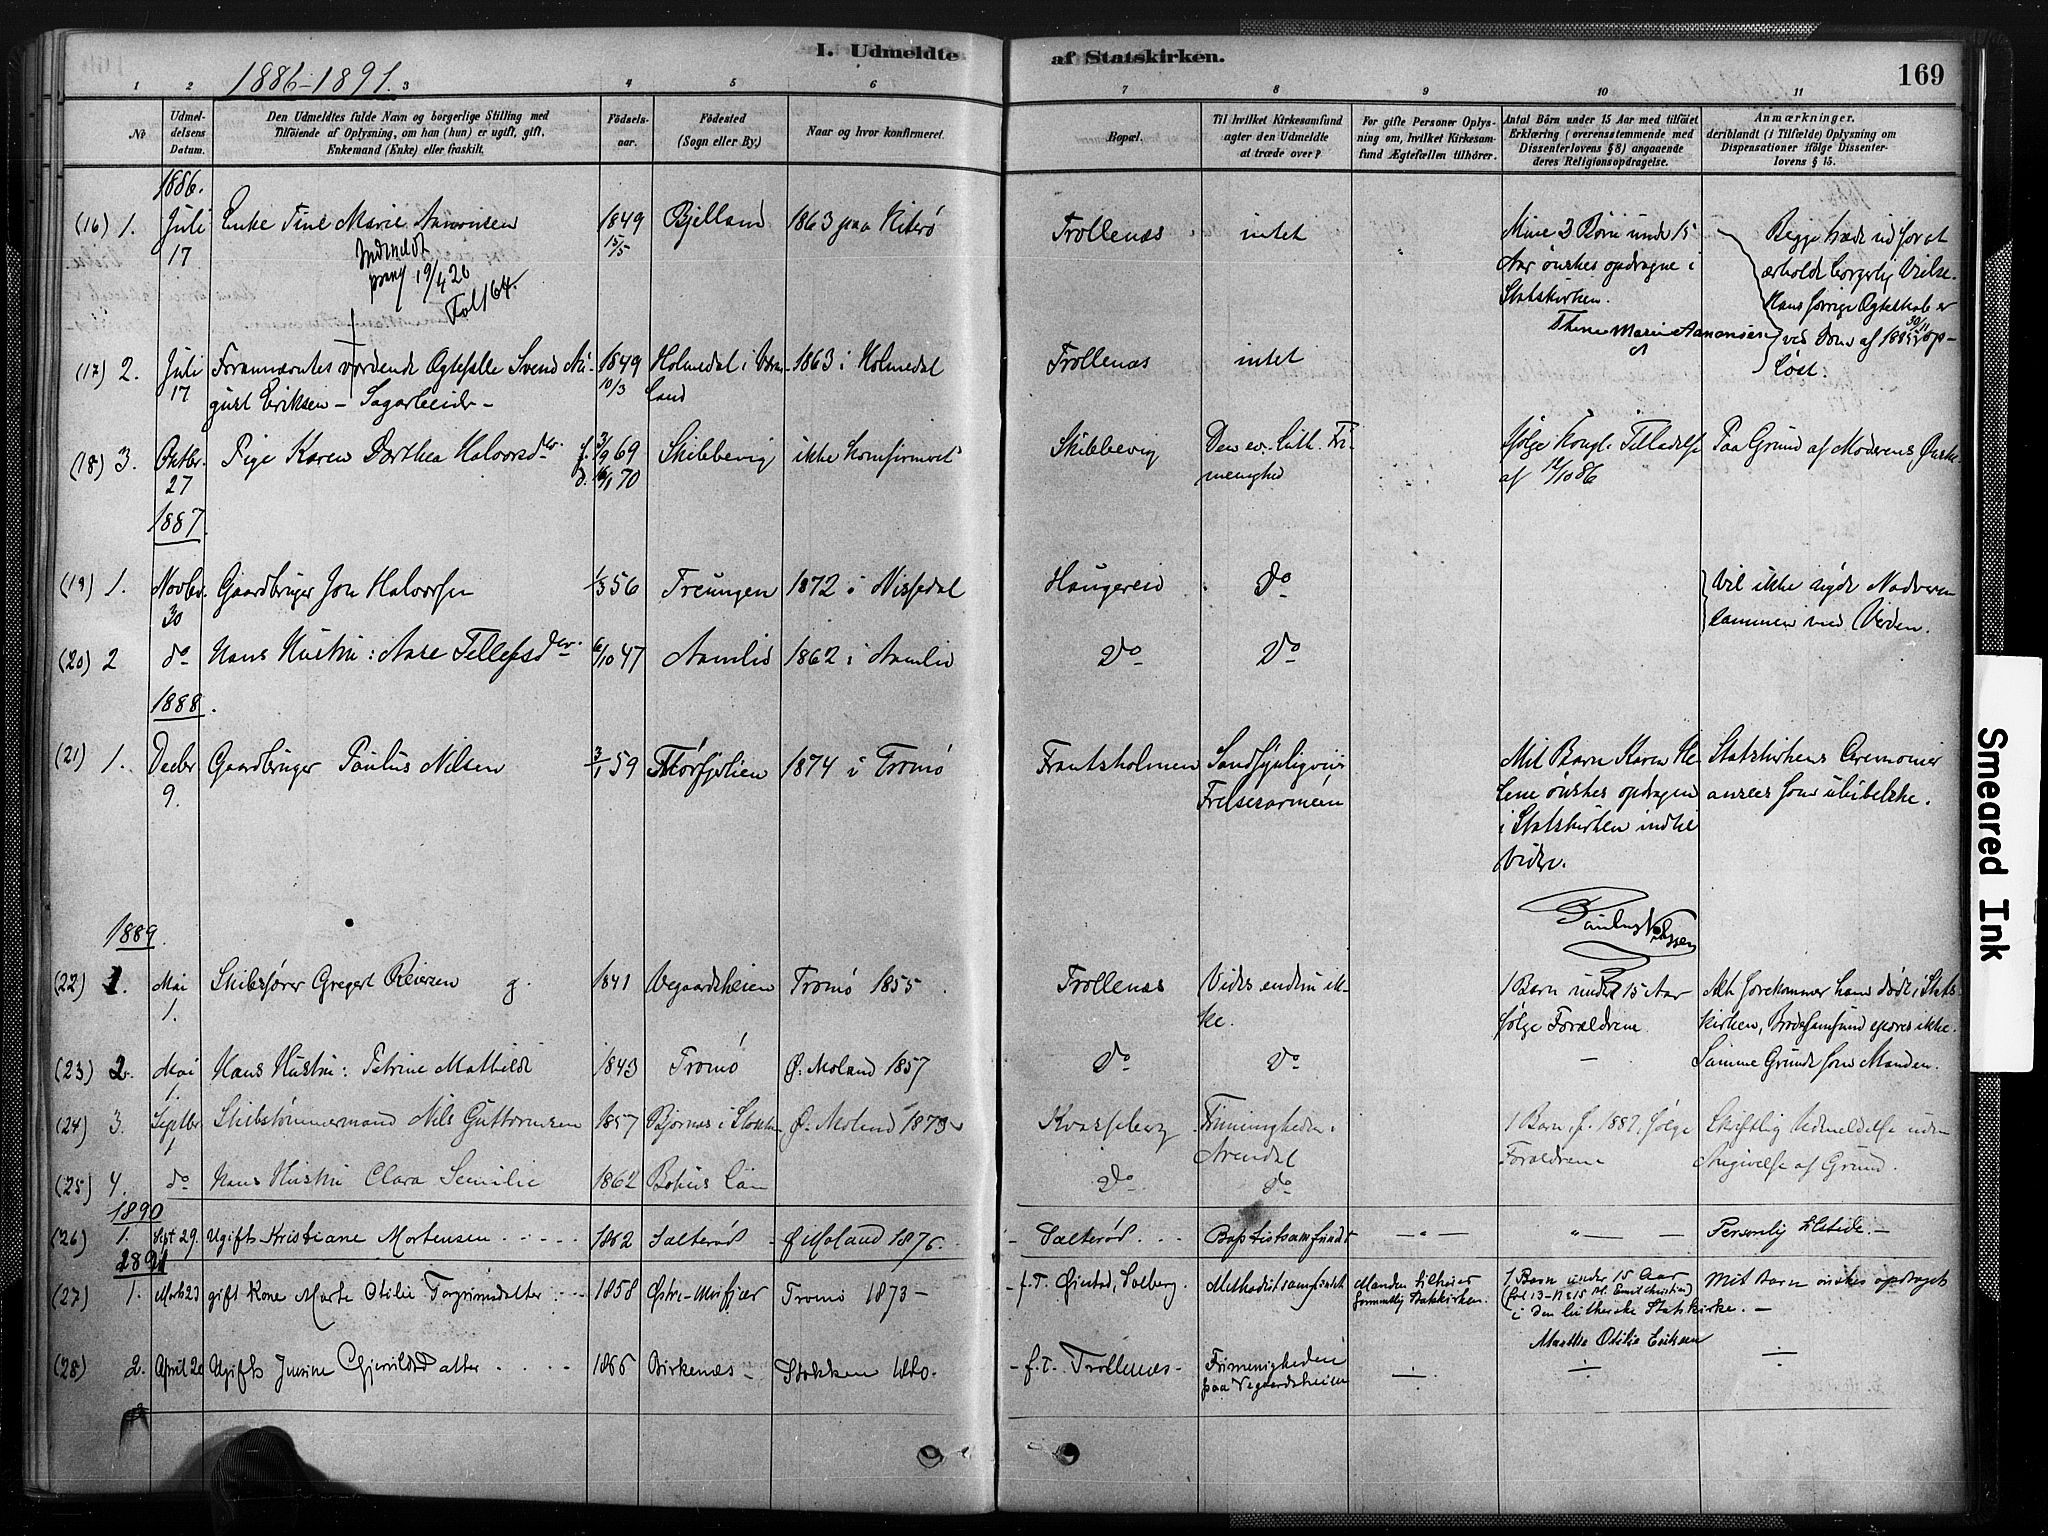 I. Udmeldte af Statskirken.
169
1886-1891.
1 2 3 4 5 6 7 8 9 10 11
No
Udmel-
delsens
Datum.
Den Udmeldtes fulde Navn og borgerlige Stilling med
Tilföiende af Oplysning, om han (hun) er ugift, gift,
Enkemand (Enke) eller fraskilt.
Födsels-
aar.
Födested
(Sogn eller By.)
Naar og hvor konfirmeret.
Bopæl.
Til hvilket Kirkesamfund
agter den Udmeldte
at træde over?
For gifte Personer Oplys-
ning om, hvilket Kirkesam-
fund Ægtefællen tilhörer.
Antal Börn under 15 Aar med tilföiet
Erklæring (overensstemmende med
Dissenterlovens § 8) angaaende
deres Religionsopdragelse.
Anmærkninger,
deriblandt (i Tilfælde) Oplysning om
Dispensationer ifölge Dissenter-
lovens § 15.
1886.
(16) 1.
Juli
17
Enke Tine Marie Aamonsen
Indmeldt
19/4 20
Fol 164.
1849
15/5
Bjelland
1863 paa Hiterø
Trollenæs
intet
Mine 3 Børn under 15
Aar ønskes opdragne i
Statskirken.
Thine Marie Aamonsen
Begge træde ud for at
erholde borgerlig Vielse.
Hans forrige Ægteskab er
ved Dom af 30/11 1885 op-
løst.
(17) 2.
Juli
17
Forannævntes vordende Ægtefælle Svend Au-
gust Eriksen - Sagarbeider -
1849
10/3
Holmedal i Verm-
land
1863 i Holmedal
Trollenæs
intet
(18) 3.
Oktbr.
27
Pige Karen Dorthea Halvorsdtr.
f. 3/9 69
d. 16/1 70
Skibbevig
ikke konfirmeret
Skibbevig
Den ev. luth. Fri-
menighed
Ifølge kongl. Tilladelse
af 12/10 86
Paa Grund af Moderens Ønske
1887.
(19) 1.
Novbr.
30
Gaardbruger Jon Halvorsen
1/3 56
Treungen
1872 i Nissedal
Haugereid
do
Vil ikke nyde Nadveren
sammen med Verden.
(20) 2
do
Hans Hustru: Aase Tellefsdtr.
6/10 47
Aamlid
1862 i Aamlid
do
do
1888.
(21) 1.
Decbr
9.
Gaardbruger Paulus Nilsen
3/1 59
Thorfjelien
1874 i Tromø
Frantsholmen
Sandsynligvis
Frelsesarmeen
Mit Barn Karen He-
lene ønskes opdragen
i Statskirken indtil
videre.
Paulus Nilssen
Statskirkens Ceremonier
ansees som ubibelske.
1889
(22) 1.
Mai
1.
Skibsfører Gregert Reiersen g.
1841
Vegaardsheien
Tromø 1855.
Trollenæs
Vides endnu ik-
ke.
1 Barn under 15 Aar
følge Forældrene
Alt forekommer ham dødt i Stats-
kirken, Brodersamfund spores ikke.
(23) 2.
Mai
1.
Hans Hustru: Petrine Mathilde
1843
Tromø
Ø. Moland 1857
do
do
-
Samme Grund som Manden.
(24) 3.
Septbr
1
Skibstømmermand Nils Guttormsen
1857
Bjørnes i Stokken
Ø. Moland 1873
Kvasseberg
Frimenigheden i
Arendal
1 Barn, f. 1887, følge
Forældrene
Skriftlig Udmeldelse uden
Angivelse af Grund.
(25) 4.
do
Hans Hustru Clara Semilie
1862
Bohus Län
do
do
1890
(26) 1.
Sept 29.
Ugift Kristiane Mortensen
1862
Salterød
Ø. Moland 1876.
Salterød
Baptistsamfundet
Personlig tilstede. -
1891
(27) 1.
Marts 23
gift Kone Marte Otilie Torgrimsdatter
1858
Østre
Tromø 1873 -
f. T. Øiestad, Solberg.
Methodistsamfundet
Manden tilhører
Statskirken.
1 Barn under 15 Aar
(Emil Christian)
i den lutherske Statskirke. -
Marthe Otilie Eriksen
Mit Barn ønskes opdraget
(28) 2.
April 20
Ugift Gjerulds Datter
1866
Birkenes -
Stokken 1880.
- f. T. Trollenæs -
Frimenigheden
paa Vegaardsheien
Smeared Ink